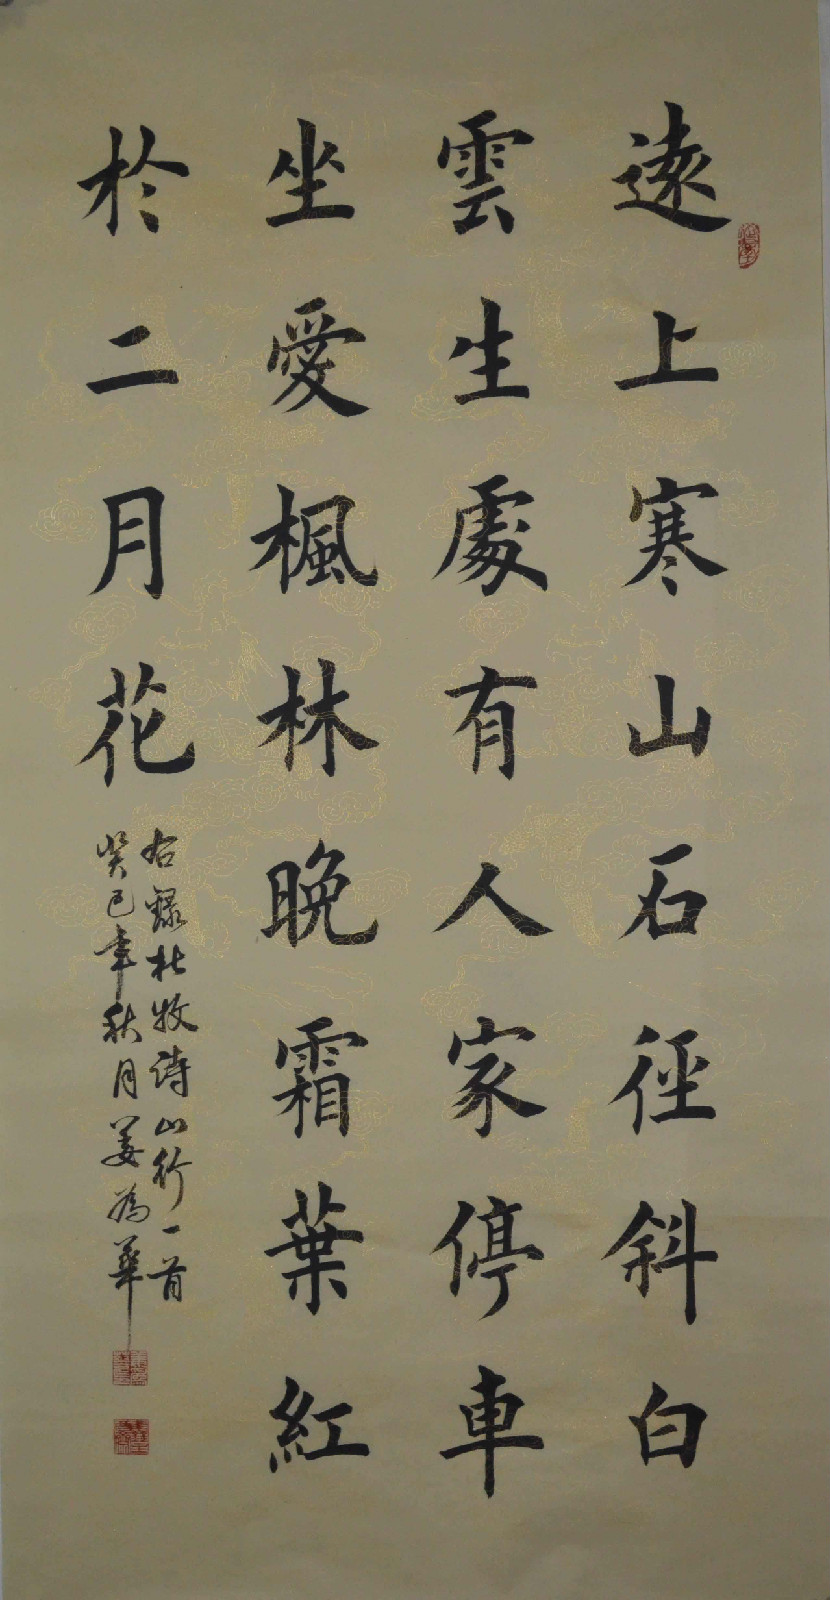 遠上寒山石徑斜白
雲生處有人家停車
坐愛楓林晚霜葉紅
於二月花
右錄杜牧詩山行一首
癸巳年秋月姜為華